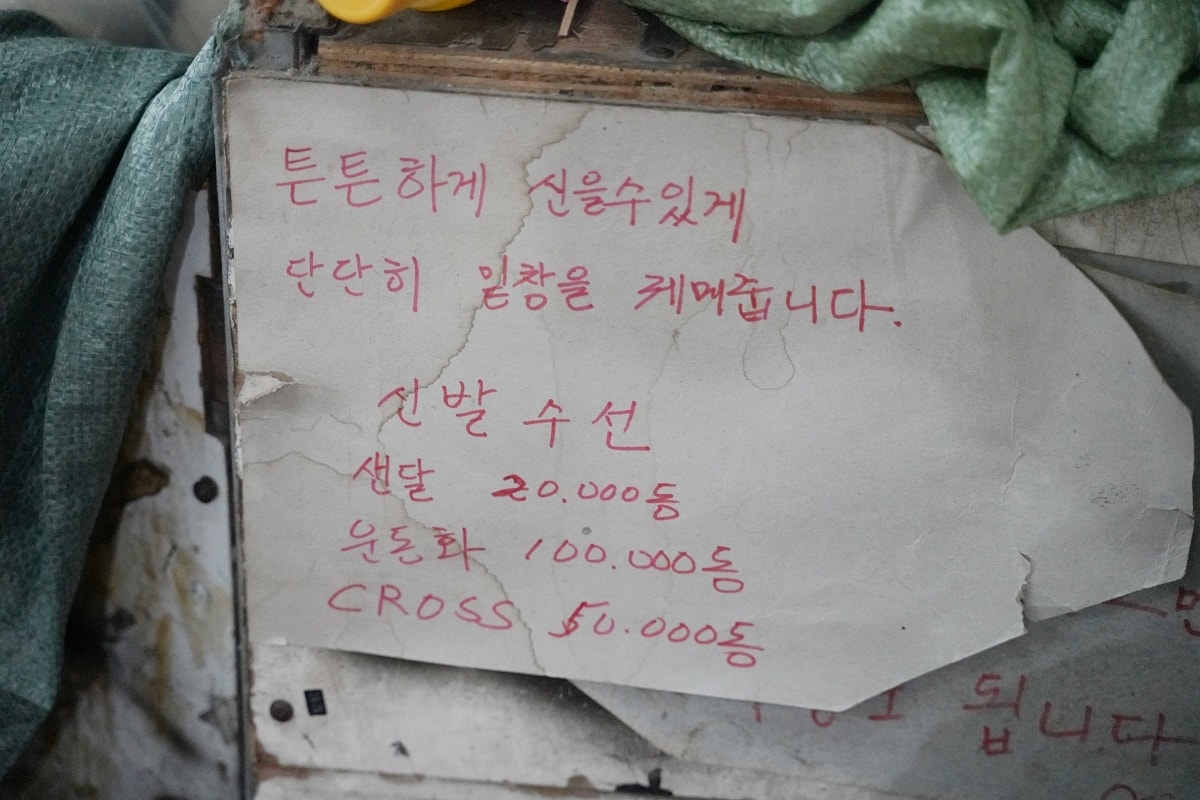 튼튼하게 신을수있게
단단히 밑창을 케메줍니다.
신발 수선
샌달 20.000동
운돈화 100.000동
CROSS 50.000동
됩니다